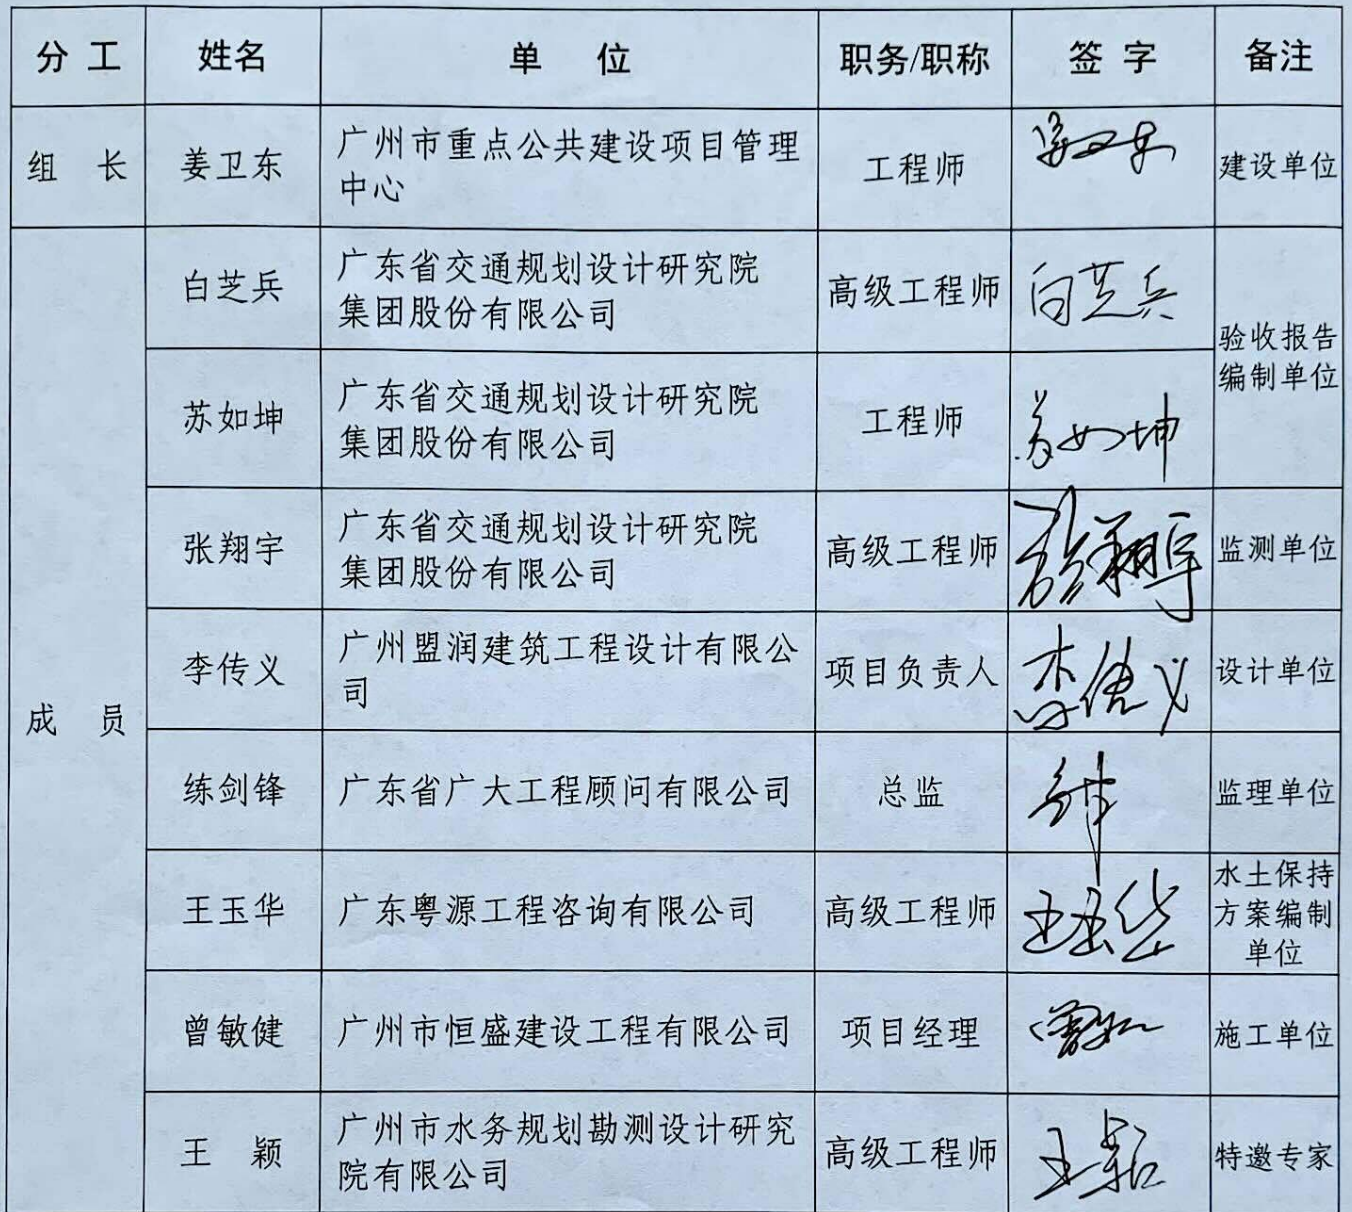 分 工 姓名 单 位 职务/职称 签 字 备注
组 长 姜卫东 广州市重点公共建设项目管理
中心 工程师 姜卫东 建设单位
成 员
白芝兵 广东省交通规划设计研究院
集团股份有限公司 高级工程师 白芝兵
验收报告
编制单位
苏如坤 广东省交通规划设计研究院
集团股份有限公司 工程师 苏如坤
张翔宇 广东省交通规划设计研究院
集团股份有限公司 高级工程师 张翔宇 监测单位
李传义 广州盟润建筑工程设计有限公
司 项目负责人 李传义 设计单位
练剑锋 广东省广大工程顾问有限公司 总监 监理单位
王玉华 广东粤源工程咨询有限公司 高级工程师 王玉华 水土保持
方案编制
单位
曾敏健 广州市恒盛建设工程有限公司 项目经理 施工单位
王 颖 广州市水务规划勘测设计研究
院有限公司 高级工程师 王颖 特邀专家